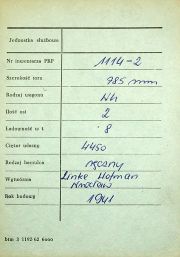 Jednostka służbowa
Nr inwentarza PKP 1114-2
Szerokość toru 785 mm
Rodzaj wagonu Wh
Ilość osi 2
Ładowność w t. 8
Ciężar własny 4450
Rodzaj hamulca ręczny
Wytwórnia Linke Hofman
Wrocław
Rok budowy 1941